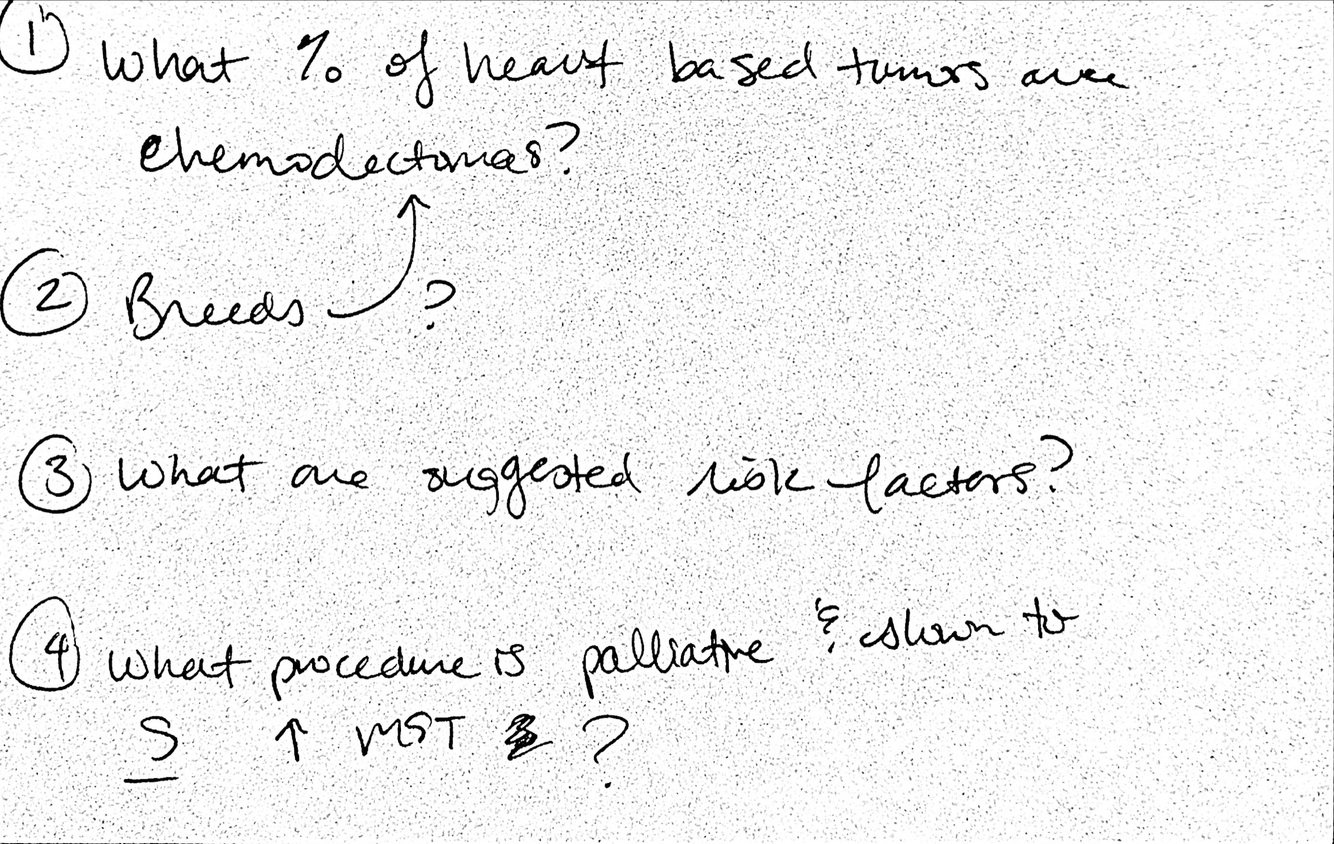 ① What % of heart based tumors are
chemodectomas?
② Breeds ?
③ What are suggested risk factors?
④ What procedure is palliative & shown to
S ↑ MST ?